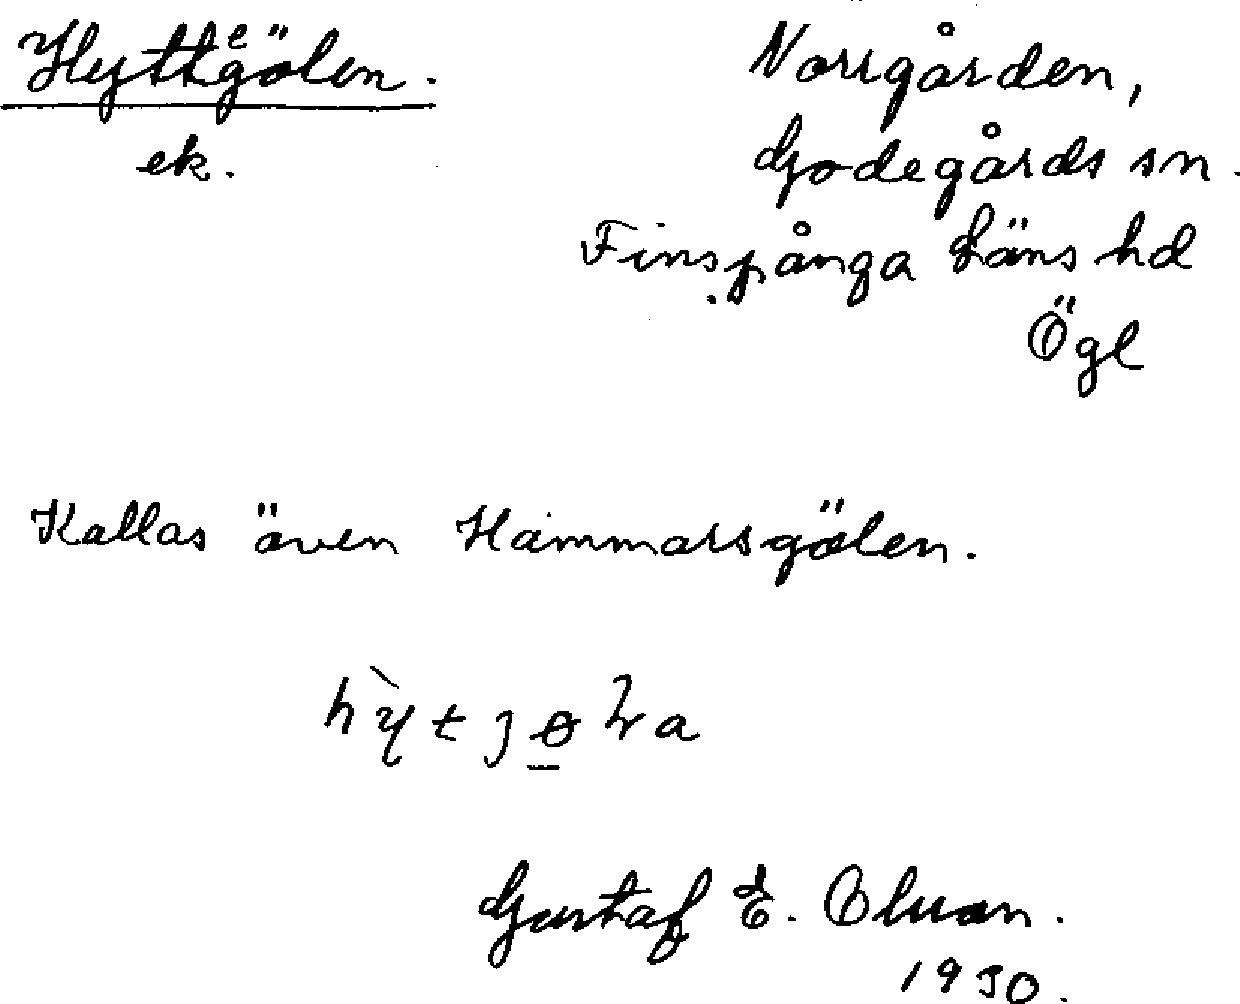 Hyttegölen.
ek.
Norrgården,
Godegårds sn.
Finspånga läns hd
Ögl
Kallas även Hammarsgölen.
Gustaf E. Olsson.
1930.